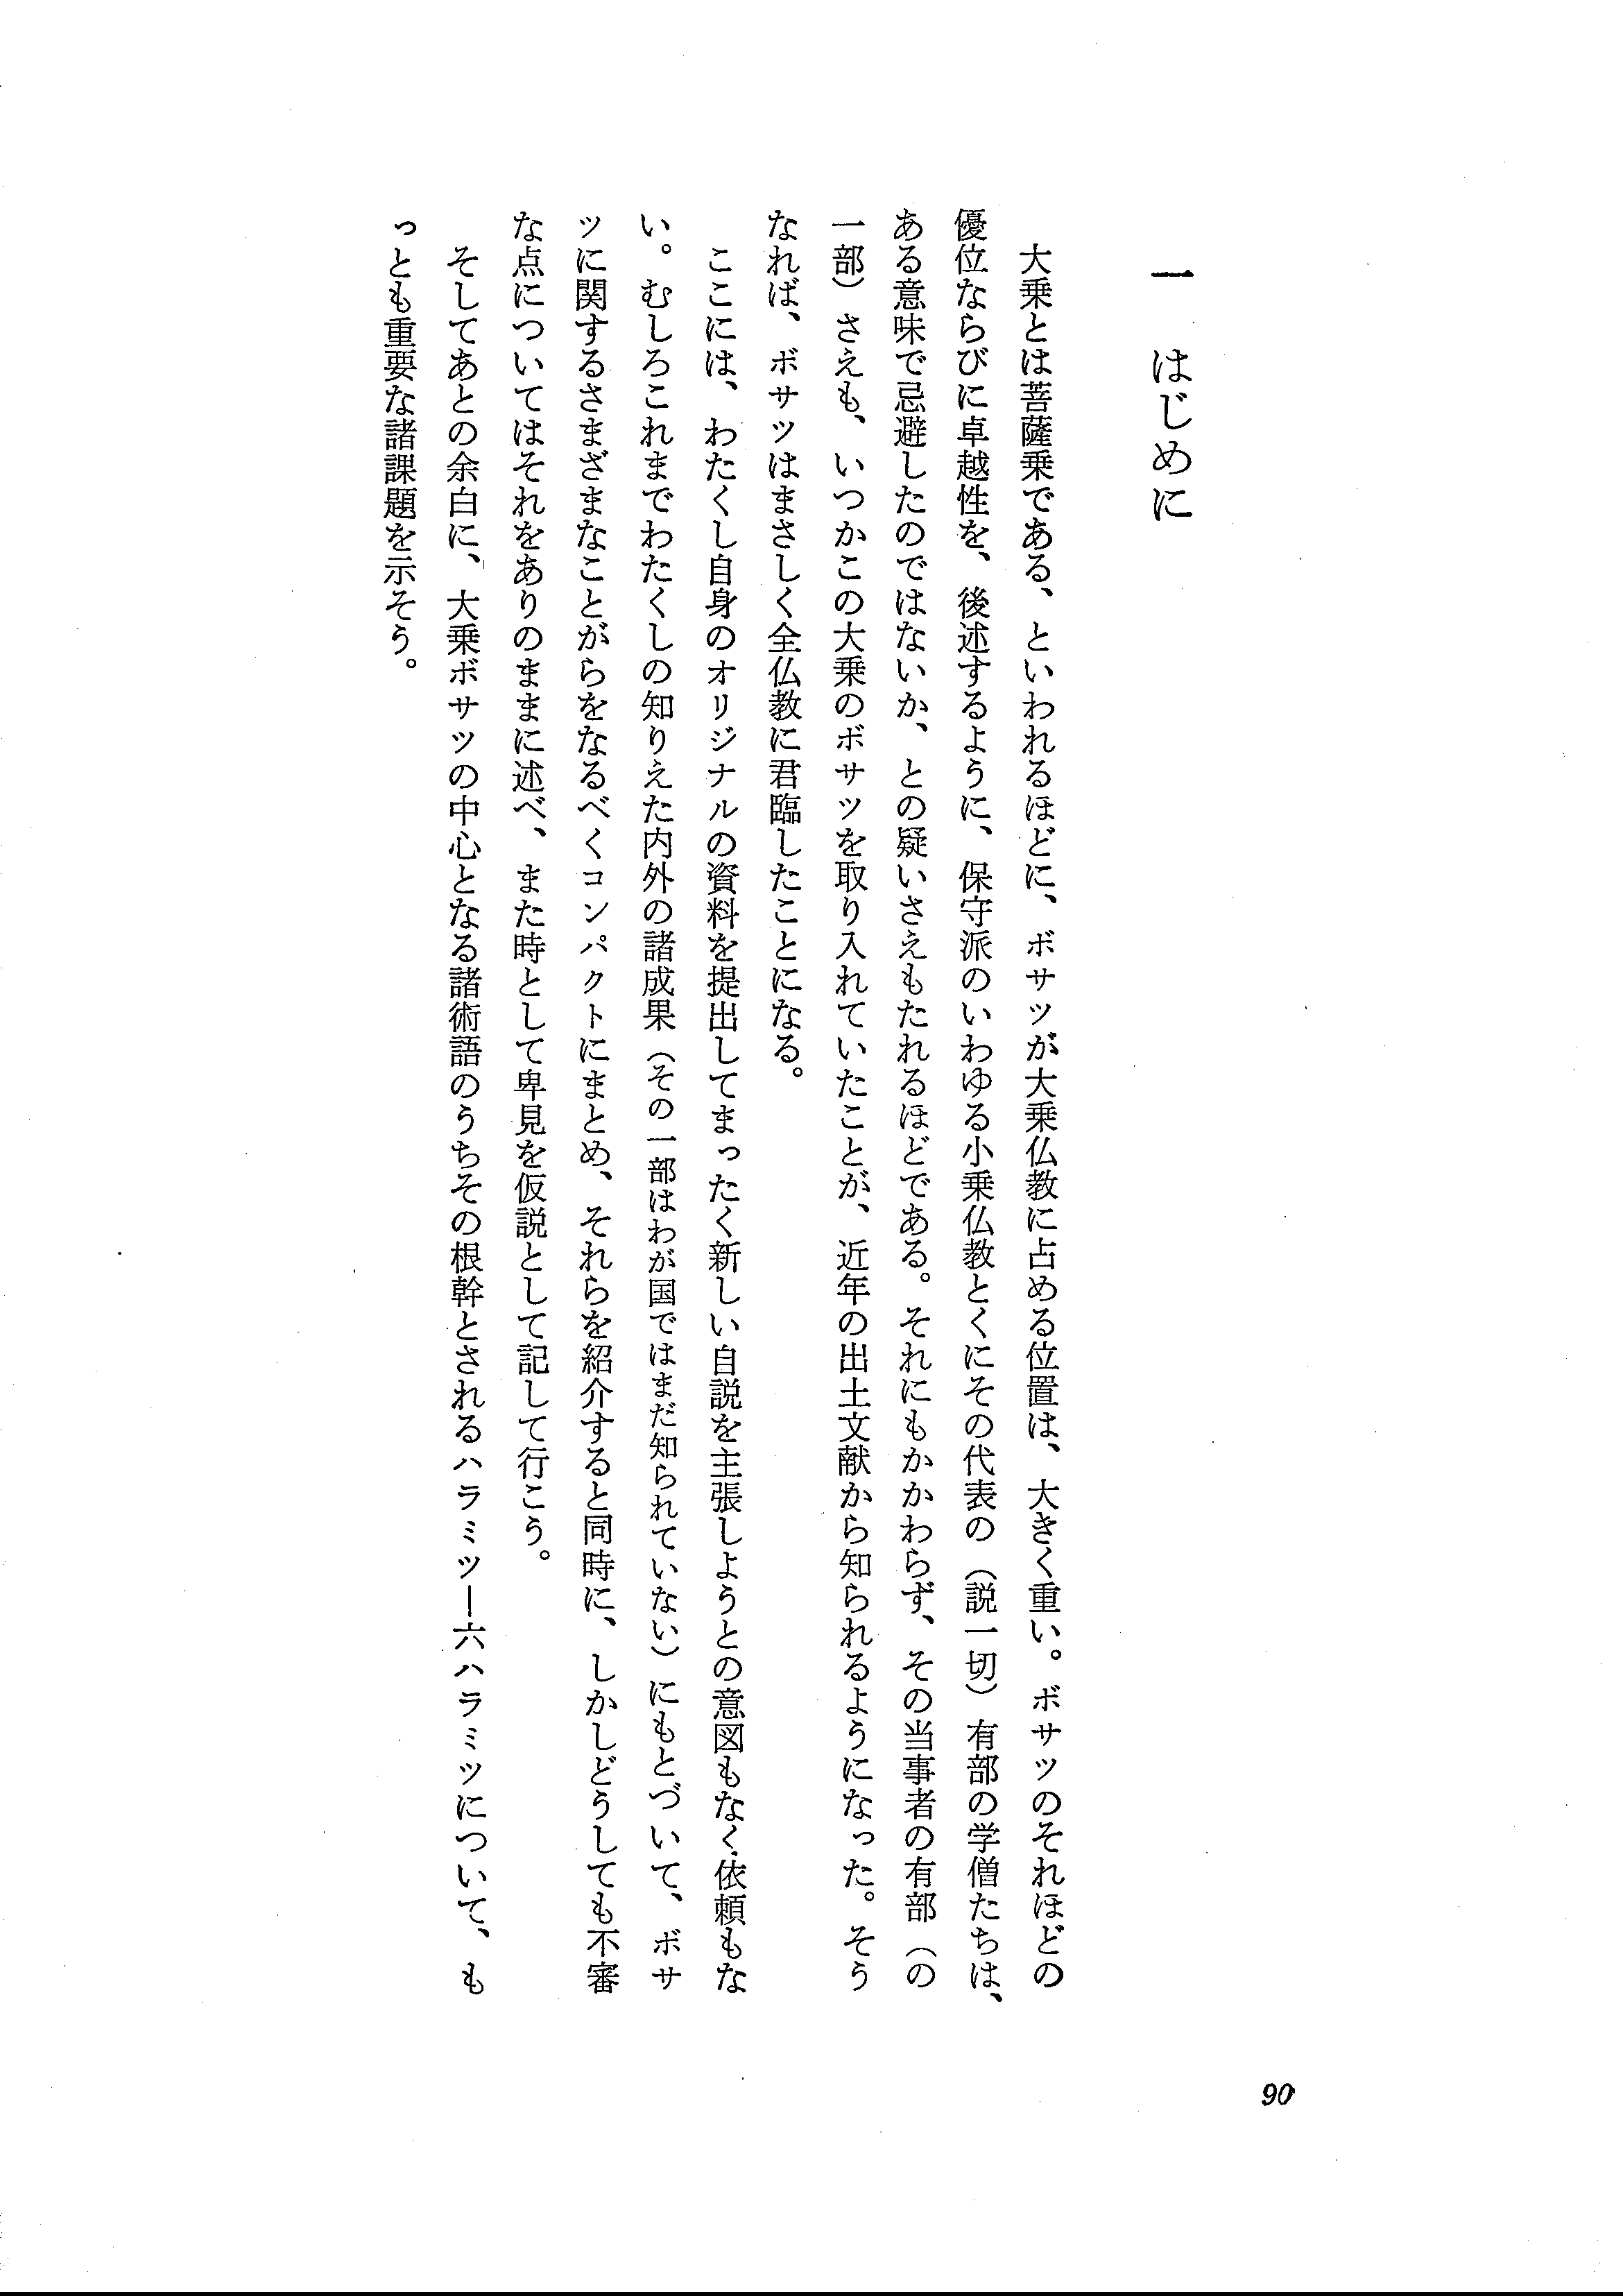 一　はじめに
　大乗とは菩薩乗である、といわれるほどに、ボサツが大乗仏教に占める位置は、大きく重い。ボサツのそれほどの
優位ならびに卓越性を、後述するように、保守派のいわゆる小乗仏教とくにその代表の（説一切）有部の学僧たちは、
ある意味で忌避したのではないか、との疑いさえもたれるほどである。それにもかかわらず、その当事者の有部（の
一部）さえも、いつかこの大乗のボサツを取り入れていたことが、近年の出土文献から知られるようになった。そう
なれば、ボサツはまさしく全仏教に君臨したことになる。
　ここには、わたくし自身のオリジナルの資料を提出してまったく新しい自説を主張しようとの意図もなく依頼もな
い。むしろこれまでわたくしの知りえた内外の諸成果（その一部はわが国ではまだ知られていない）にもとづいて、ボサ
ツに関するさまざまなことがらをなるべくコンパクトにまとめ、それらを紹介すると同時に、しかしどうしても不審
な点についてはそれをありのままに述べ、また時として卑見を仮説として記して行こう。
　そしてあとの余白に、大乗ボサツの中心となる諸術語のうちその根幹とされるハラミツ―六ハラミツについて、も
っとも重要な諸課題を示そう。
90